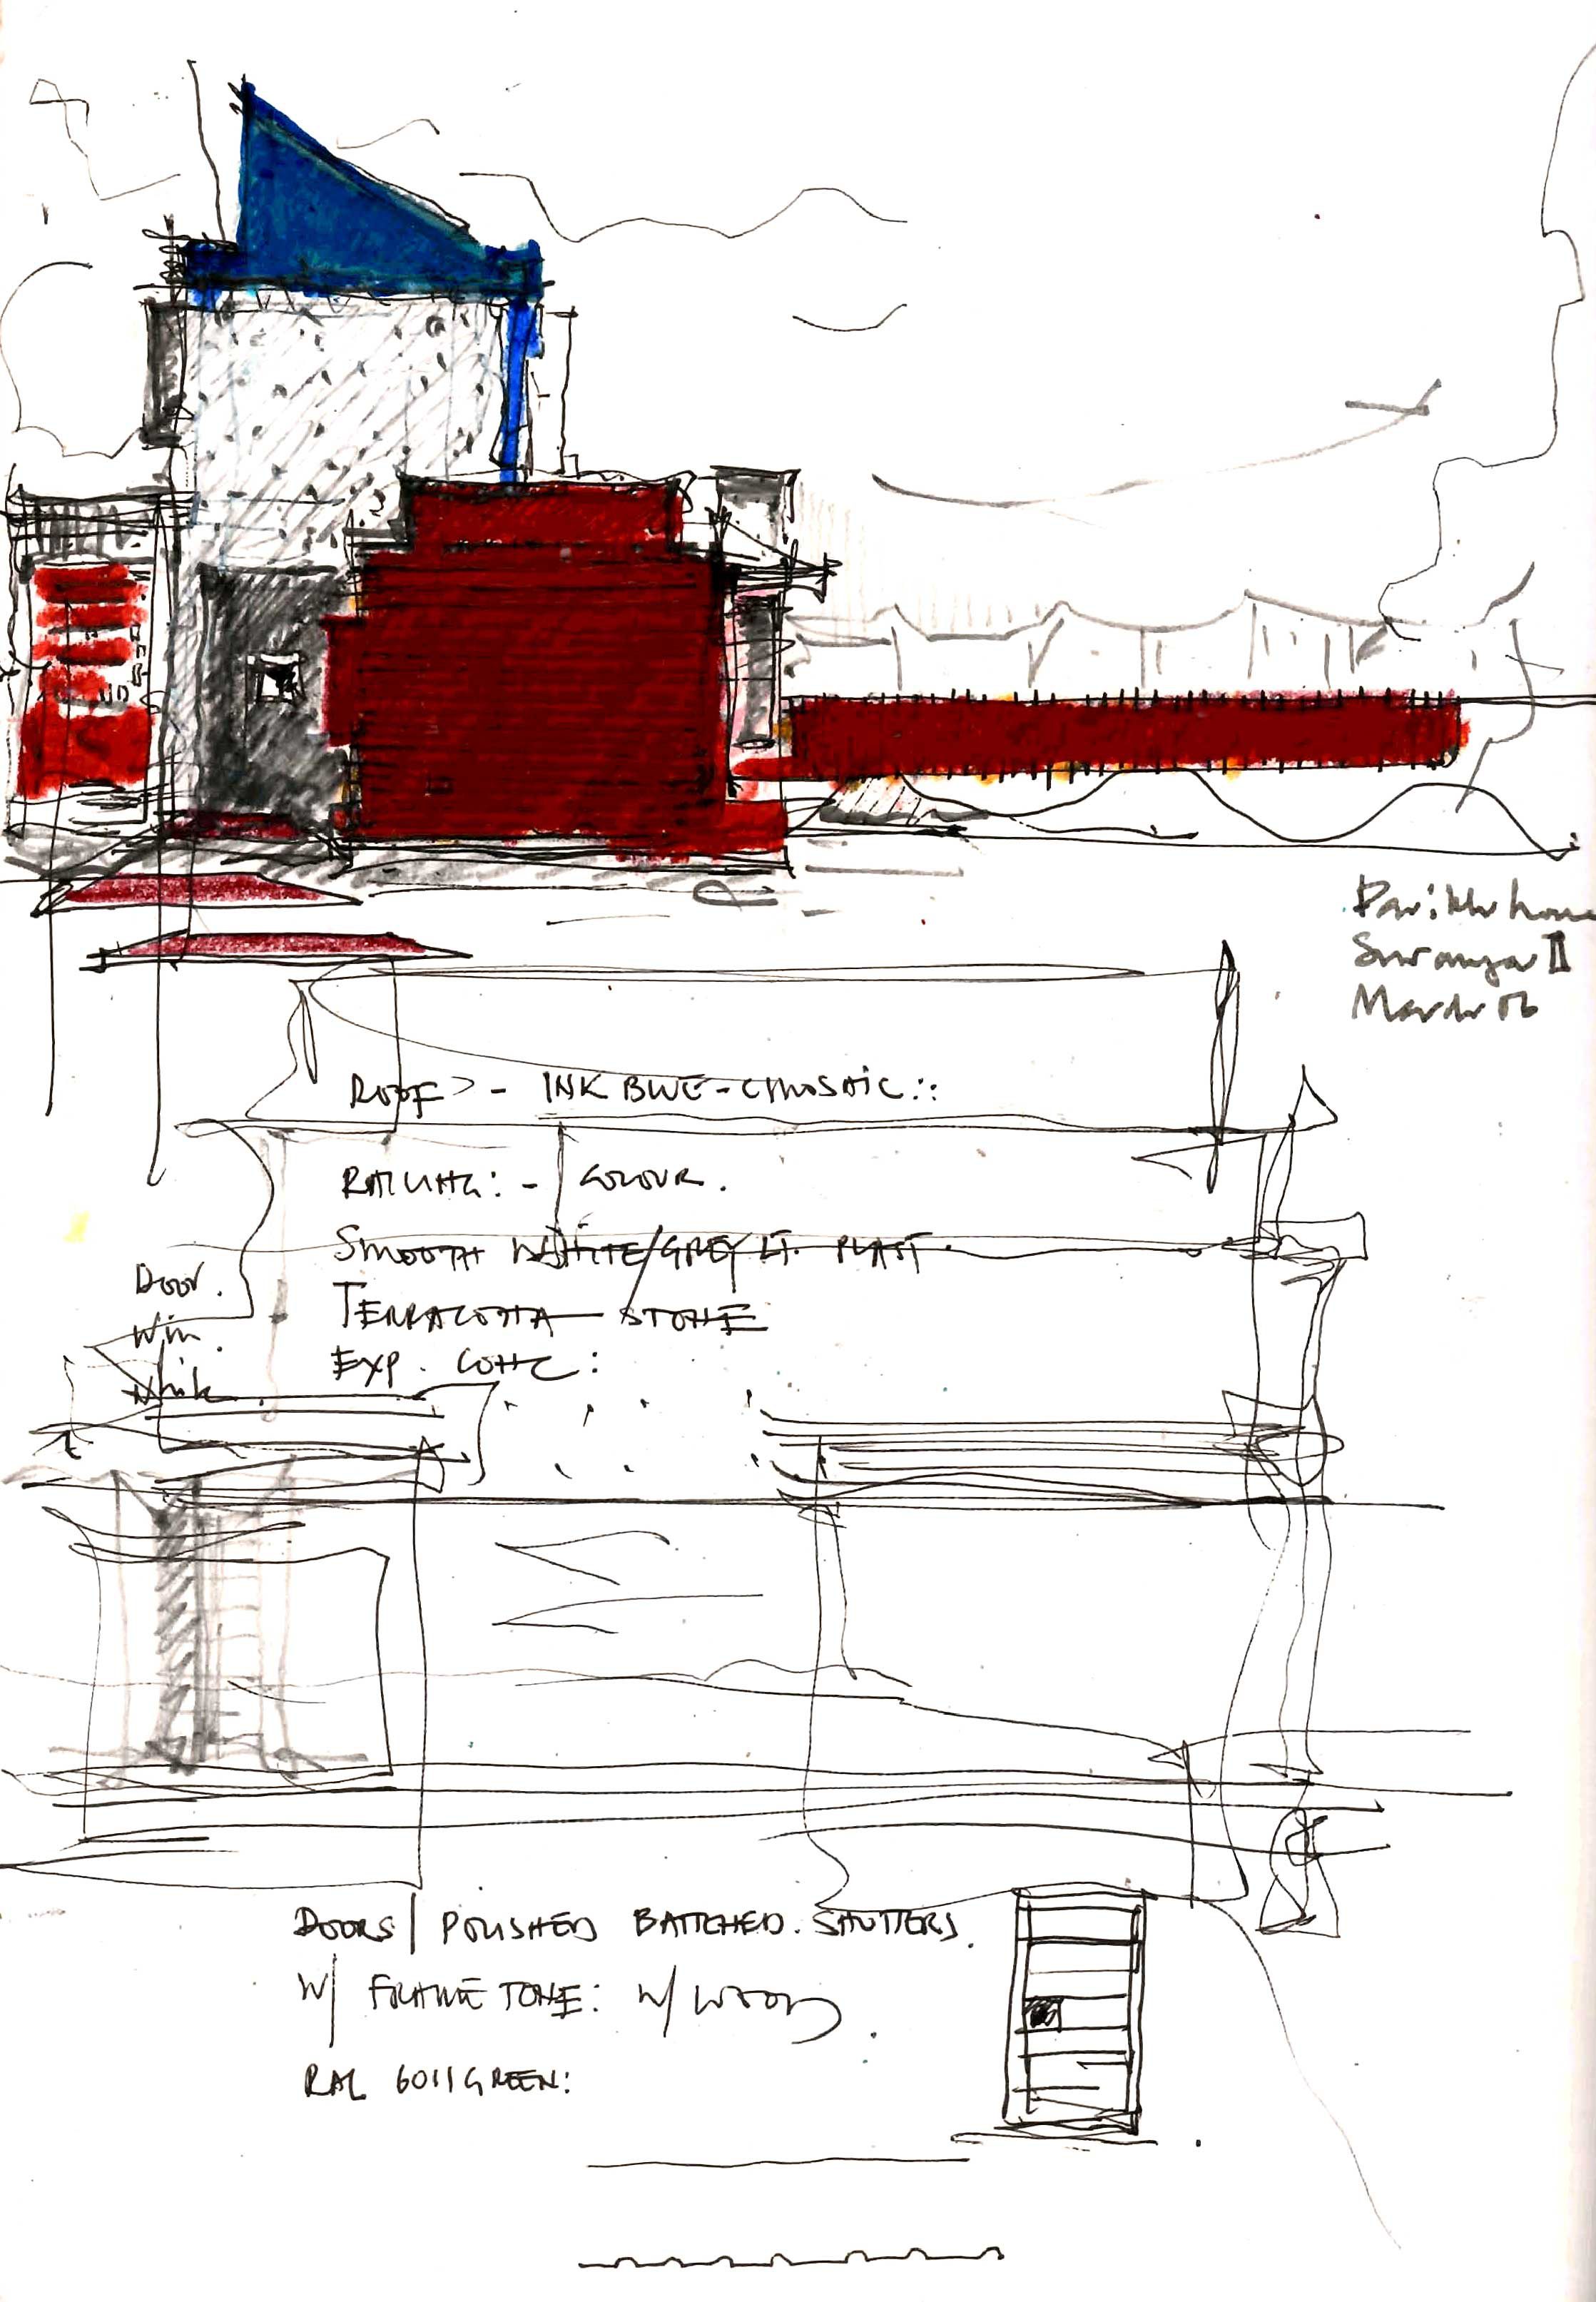 Parikh house
Suramya II
March 06
ROOF > - INK BLUE - C/MOSAIC ::
RAILING : - COLOUR.
SMOOTH WHITE/GREY LT. PLAST.
TERRACOTTA STONE
EXP. CONC :
Door.
Win.
DOORS / POLISHED BATTENED. SHUTTERS.
W/ FRAME TONE : W/ WOOD
RAL 6011 GREEN :